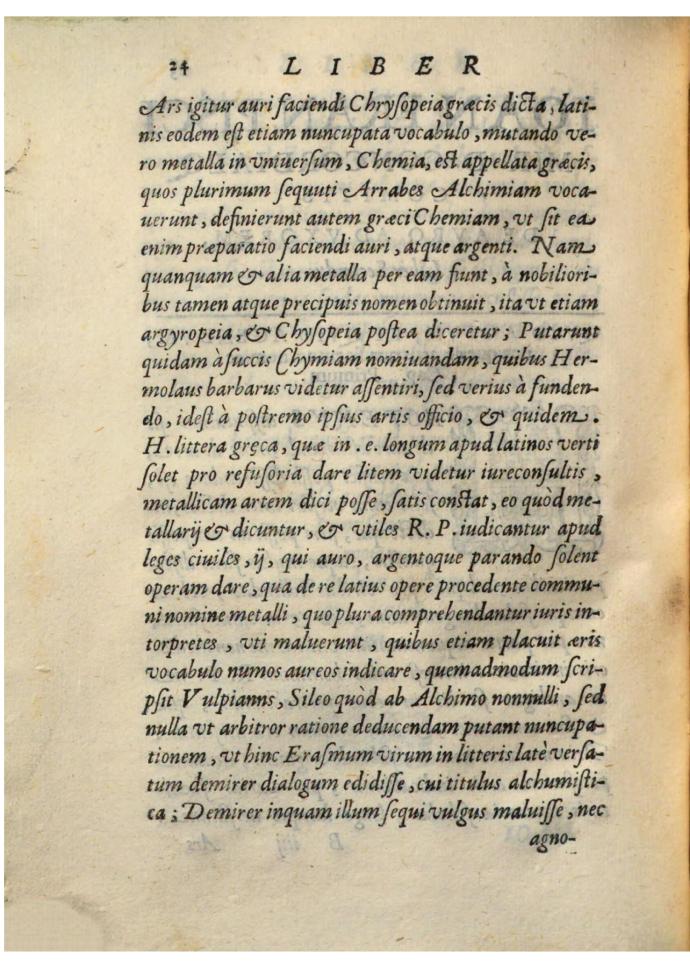 24 LIBER
Ars igitur auri faciendi Chryſopeia græcis dicta, lati-
nis eodem eſt etiam nuncupata vocabulo, mutando ve-
ro metalla in vniuerſum, Chemia, eſt appellata græcis,
quos plurimum ſequuti Arrabes Alchimiam voca-
uerunt, definierunt autem græci Chemiam, vt ſit ea
enim præparatio faciendi auri, atque argenti. Nam
quanquam & alia metalla per eam fiunt, à nobiliori-
bus tamen atque precipuis nomen obtinuit, ita vt etiam
argyropeia, & Chyſopeia poſtea diceretur; Putarunt
quidam à ſuccis Chymiam nomiuandam, quibus Her-
molaus barbarus videtur aſſentiri, ſed verius à funden-
do, ideſt à poſtremo ipſius artis officio, & quidem.
H. littera gręca, quæ in .e. longum apud latinos verti
ſolet pro refuſoria dare litem videtur iureconſultis,
metallicam artem dici poſſe, ſatis conſtat, eo quòd me-
tallarij & dicuntur, & vtiles R. P. iudicantur apud
leges ciuiles, ij, qui auro, argentoque parando ſolent
operam dare, qua de re latius opere procedente commu-
ni nomine metalli, quo plura comprehendantur iuris in-
torpretes, vti maluerunt, quibus etiam placuit æris
vocabulo numos aureos indicare, quemadmodum ſcri-
pſit Vulpianns, Sileo quòd ab Alchimo nonnulli, ſed
nulla vt arbitror ratione deducendam putant nuncupa-
tionem, vt hinc Eraſmum virum in litteris latè verſa-
tum demirer dialogum edidiſſe, cui titulus alchumiſti-
ca; Demirer inquam illum ſequi vulgus maluiſſe, nec
agno-